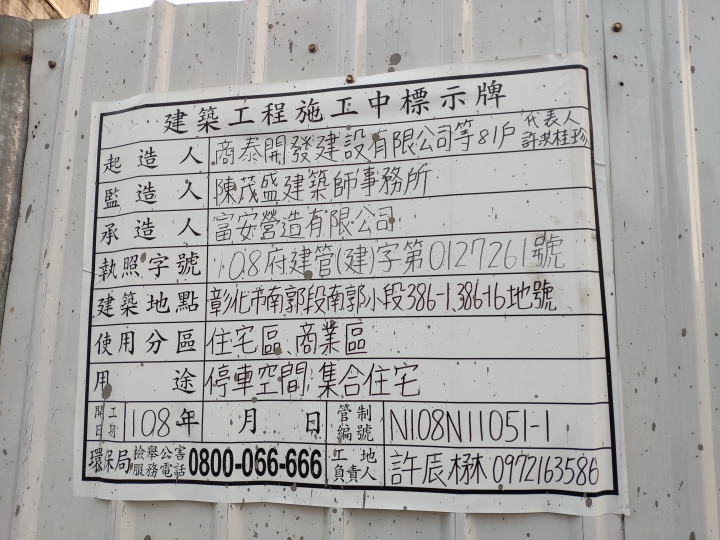 建築工程施工中標示牌
起造人 商泰開發建設有限公司等81戶 代表人 許洪桂珍
監造人 陳茂盛建築師事務所
承造人 富安營造有限公司
執照字號 108府建管(建)字第0127261號
建築地點 彰化市南郭段南郭小段386-1.386-16地號
使用分區 住宅區、商業區
用途 停車空間.集合住宅
開工日期 108年 月 日 管制編號 N108N11051-1
環保局 檢舉公害服務電話 0800-066-666 工地負責人 許辰 0972163586